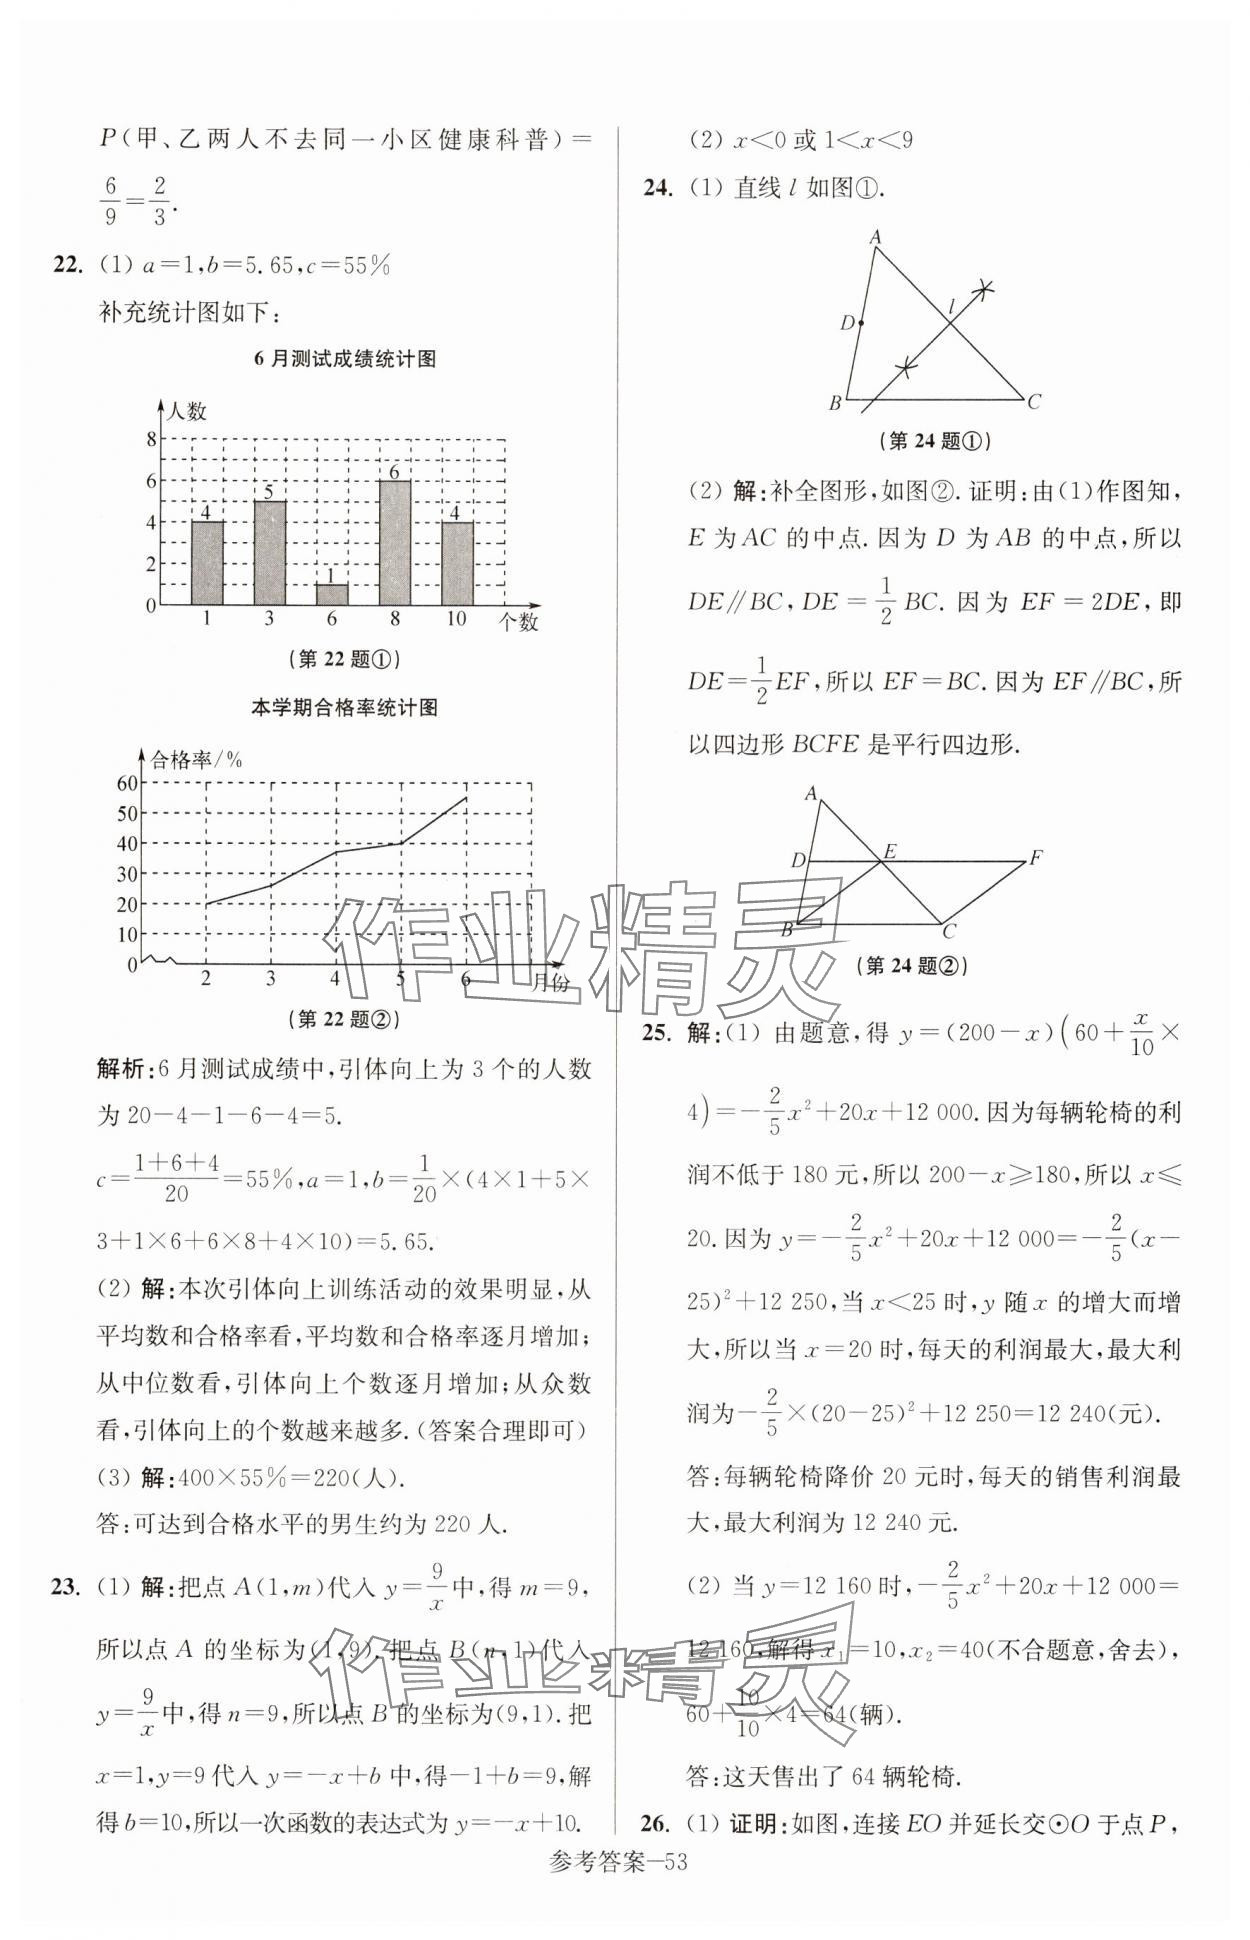 P(甲、乙两人不去同一小区健康科普)=
6/9=2/3.
22. (1) a=1,b=5.65,c=55%
补充统计图如下:
6月测试成绩统计图
人数
8
6
4
2
0
4
5
1
6
4
1 3 6 8 10 个数
(第22题①)
本学期合格率统计图
合格率/%
60
50
40
30
20
10
0
2 3 4 5 6 月份
(第22题②)
解析:6月测试成绩中,引体向上为3个的人数
为20-4-1-6-4=5.
c=(1+6+4)/20=55%,a=1,b=1/20×(4×1+5×
3+1×6+6×8+4×10)=5.65.
(2) 解:本次引体向上训练活动的效果明显,从
平均数和合格率看,平均数和合格率逐月增加;
从中位数看,引体向上个数逐月增加;从众数
看,引体向上的个数越来越多.(答案合理即可)
(3) 解:400×55%=220(人).
答:可达到合格水平的男生约为220人.
23. (1) 解:把点A(1,m)代入y=9/x中,得m=9,
所以点A的坐标为(1,9).把点B(n,1)代入
y=9/x中,得n=9,所以点B的坐标为(9,1).把
x=1,y=9代入y=-x+b中,得-1+b=9,解
得b=10,所以一次函数的表达式为y=-x+10.
(2) x<0或1<x<9
24. (1) 直线l如图①.
A
l
D
B
C
(第24题①)
(2) 解:补全图形,如图②.证明:由(1)作图知,
E为AC的中点.因为D为AB的中点,所以
DE∥BC,DE=1/2BC.因为EF=2DE,即
DE=1/2EF,所以EF=BC.因为EF∥BC,所
以四边形BCFE是平行四边形.
A
D
E
F
B
C
(第24题②)
25. 解:(1) 由题意,得y=(200-x)(60+x/10×
4)=-2/5x²+20x+12 000.因为每辆轮椅的利
润不低于180元,所以200-x≥180,所以x≤
20.因为y=-2/5x²+20x+12 000=-2/5(x-
25)²+12 250,当x<25时,y随x的增大而增
大,所以当x=20时,每天的利润最大,最大利
润为-2/5×(20-25)²+12 250=12 240(元).
答:每辆轮椅降价20元时,每天的销售利润最
大,最大利润为12 240元.
(2) 当y=12 160时,-2/5x²+20x+12 000=
12 160,解得x₁=10,x₂=40(不合题意,舍去),
60+10/10×4=64(辆).
答:这天售出了64辆轮椅.
26. (1) 证明:如图,连接EO并延长交⊙O于点P,
参考答案—53
作业精灵
作业精灵